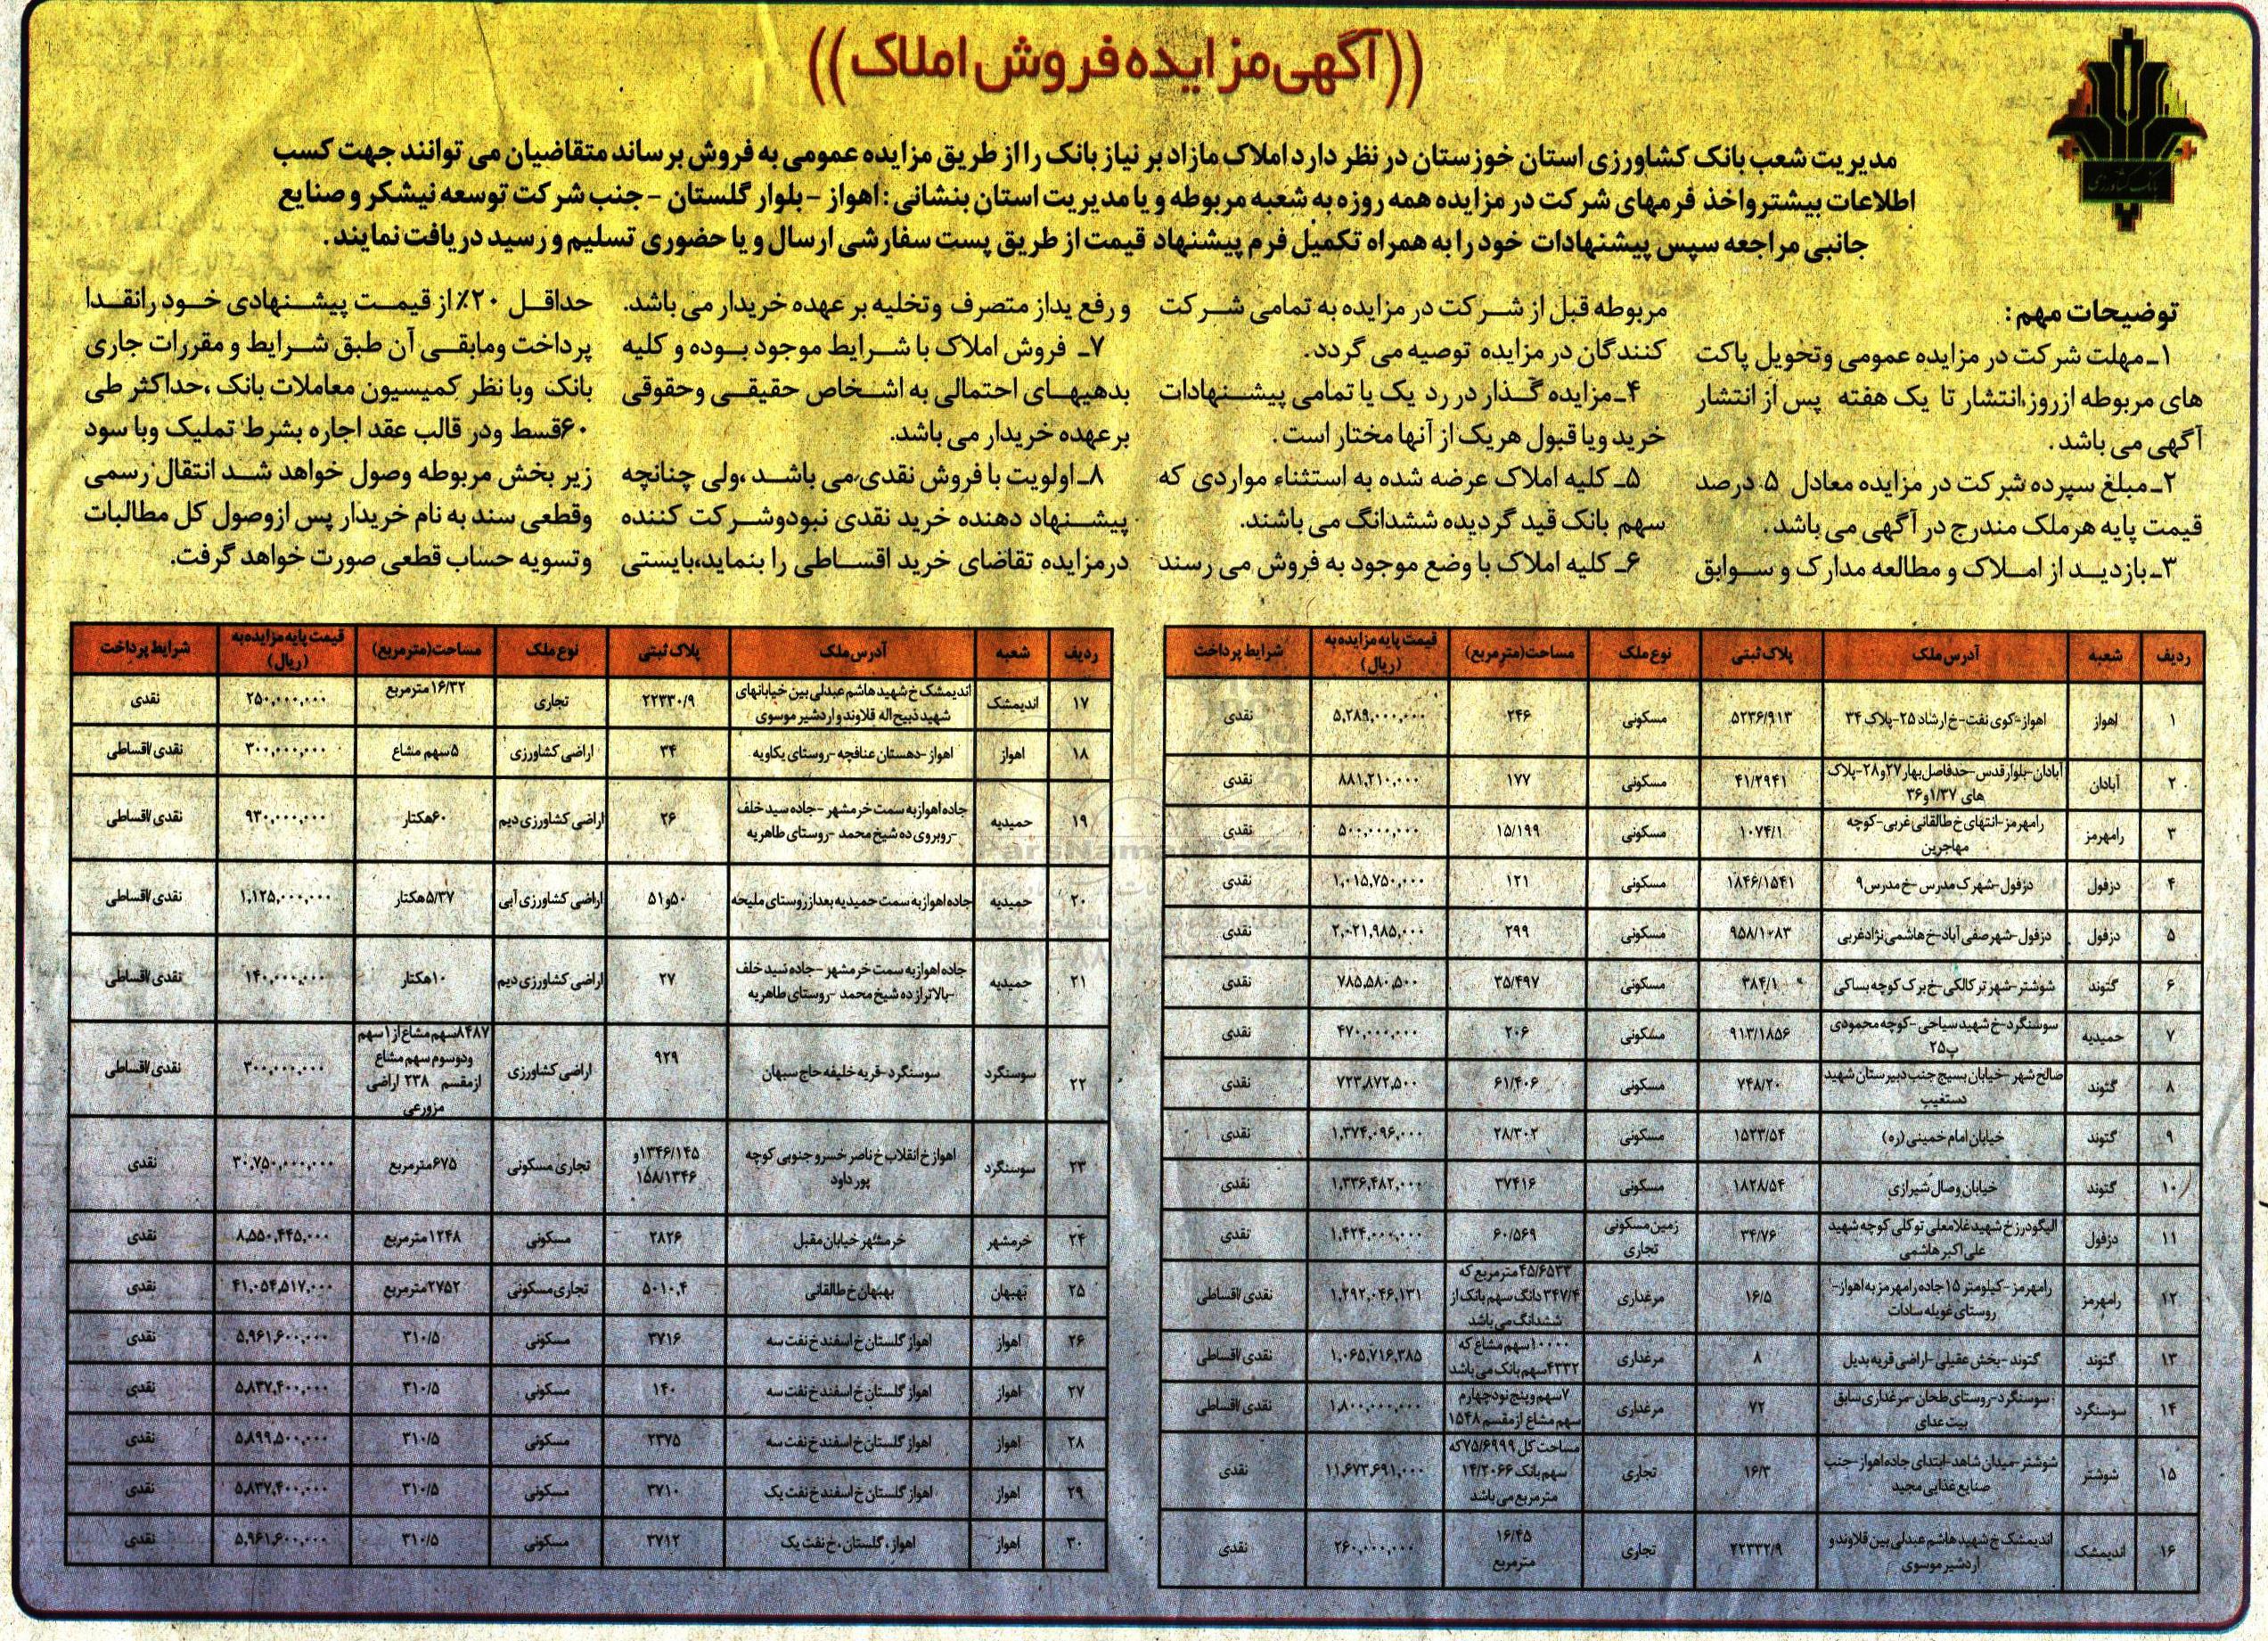 ((آگهی مزایده فروش املاک))
بانک کشاورزی
مدیریت شعب بانک کشاورزی استان خوزستان در نظر دارد املاک مازاد بر نیاز بانک را از طریق مزایده عمومی به فروش برساند متقاضیان می توانند جهت کسب
اطلاعات بیشتر واخذ فرمهای شرکت در مزایده همه روزه به شعبه مربوطه و یا مدیریت استان بنشانی : اهواز - بلوار گلستان - جنب شرکت توسعه نیشکر و صنایع
جانبی مراجعه سپس پیشنهادات خود را به همراه تکمیل فرم پیشنهاد قیمت از طریق پست سفارشی ارسال و یا حضوری تسلیم و رسید دریافت نمایند .
توضیحات مهم :
۱ـ مهلت شرکت در مزایده عمومی وتحویل پاکت
های مربوطه ازروز انتشار تا یک هفته پس از انتشار
آگهی می باشد .
۲ـ مبلغ سپرده شرکت در مزایده معادل ۵ درصد
قیمت پایه هر ملک مندرج در آگهی می باشد .
۳ـ بازدید از املاک و مطالعه مدارک و سوابق
مربوطه قبل از شرکت در مزایده به تمامی شرکت
کنندگان در مزایده توصیه می گردد.
۴ـ مزایده گذار در رد یک یا تمامی پیشنهادات
خرید ویا قبول هریک از آنها مختار است .
۵ـ کلیه املاک عرضه شده به استثناء مواردی که
سهم بانک قید گردیده ششدانگ می باشند.
۶ـ کلیه املاک با وضع موجود به فروش می رسند
و رفع ید از متصرف وتخلیه بر عهده خریدار می باشد.
۷ـ فروش املاک با شرایط موجود بوده و کلیه
بدهیهای احتمالی به اشخاص حقیقی وحقوقی
برعهده خریدار می باشد.
۸ـ اولویت با فروش نقدی می باشد ،ولی چنانچه
پیشنهاد دهنده خرید نقدی نبودوشرکت کننده
درمزایده تقاضای خرید اقساطی را بنماید،بایستی
حداقل ۲۰٪ از قیمت پیشنهادی خود رانقدا
پرداخت ومابقی آن طبق شرایط و مقررات جاری
بانک وبا نظر کمیسیون معاملات بانک ،حداکثر طی
۶۰قسط ودر قالب عقد اجاره بشرط تملیک وبا سود
زیر بخش مربوطه وصول خواهد شد انتقال رسمی
وقطعی سند به نام خریدار پس ازوصول کل مطالبات
وتسویه حساب قطعی صورت خواهد گرفت.
ردیف شعبه آدرس ملک پلاک ثبتی نوع ملک مساحت(مترمربع) قیمت پایه مزایده به (ریال) شرایط پرداخت
۱ اهواز اهواز-کوی نفت-خ ارشاد ۲۵-پلاک ۳۴ ۵۲۳۶/۹۱۳ مسکونی ۲۴۶ ۵,۲۸۹,۰۰۰,۰۰۰ نقدی
۲ آبادان آبادان-بلوار قدس-حدفاصل بهار ۲۷و۲۸-پلاک های ۱/۳۷و۳۶ ۴۱/۲۹۴۱ مسکونی ۱۷۷ ۸۸۱,۲۱۰,۰۰۰ نقدی
۳ رامهرمز رامهرمز-انتهای خ طالقانی غربی-کوچه مهاجرین ۱۰۷۴/۱ مسکونی ۱۵/۱۹۹ ۵۰۰,۰۰۰,۰۰۰ نقدی
۴ دزفول دزفول-شهرک مدرس-خ مدرس۹ ۱۸۴۶/۱۵۴۱ مسکونی ۱۲۱ ۱,۰۱۵,۷۵۰,۰۰۰ نقدی
۵ دزفول دزفول-شهر صفی آباد-خ هاشمی نژاد غربی ۹۵۸/۱۰۸۳ مسکونی ۲۹۹ ۲,۰۲۱,۹۸۵,۰۰۰ نقدی
۶ گتوند شوشتر-شهر ترکالکی-خ برک کوچه بساکی ۳۸۴/۱ مسکونی ۳۵/۴۹۷ ۷۸۵,۵۸۰,۵۰۰ نقدی
۷ حمیدیه سوسنگرد-خ شهید سیاحی-کوچه محمودی پ۲۵ ۹۱۳/۱۸۵۶ مسکونی ۲۰۶ ۴۷۰,۰۰۰,۰۰۰ نقدی
۸ گتوند صالح شهر -خیابان بسیج جنب دبیرستان شهید دستغیب ۷۴۸/۲۰ مسکونی ۶۱/۴۰۶ ۷۲۳,۸۷۲,۵۰۰ نقدی
۹ گتوند خیابان امام خمینی (ره) ۱۵۲۳/۵۴ مسکونی ۲۸/۳۰۲ ۱,۳۷۴,۰۹۶,۰۰۰ نقدی
۱۰ گتوند خیابان وصال شیرازی ۱۸۲۸/۵۴ مسکونی ۳۷۴۱۶ ۱,۳۳۶,۴۸۲,۰۰۰ نقدی
۱۱ دزفول الیگودرز خ شهید غلامعلی توکلی کوچه شهید علی اکبر هاشمی ۳۴/۷۶ زمین مسکونی تجاری ۶۰/۵۶۹ ۱,۴۲۴,۰۰۰,۰۰۰ نقدی
۱۲ رامهرمز رامهرمز-کیلومتر ۱۵ جاده رامهرمز به اهواز-روستای غویله سادات ۱۶/۵ مرغداری ۴۵/۶۵۳۳مترمربع که ۳۴۷/۴ دانگ سهم بانک از ششدانگ می باشد ۱,۲۹۲,۰۴۶,۱۳۱ نقدی/اقساطی
۱۳ گتوند گتوند-بخش عقیلی-اراضی قریه بدیل ۸ مرغداری ۱۰۰۰۰سهم مشاع که ۴۳۳۲سهم بانک می باشد ۱,۰۶۵,۷۱۶,۳۸۵ نقدی/اقساطی
۱۴ سوسنگرد سوسنگرد-روستای طحان-مرغداری سابق بیت عدای ۷۲ مرغداری ۷سهم وپنج نودچهارم سهم مشاع از مقسم ۱۵۴۸ ۱,۸۰۰,۰۰۰,۰۰۰ نقدی/اقساطی
۱۵ شوشتر شوشتر-میدان شاهد-ابتدای جاده اهواز-جنب صنایع غذایی مجید ۱۶/۳ تجاری مساحت کل ۷۵/۶۹۹۹که سهم بانک ۱۴/۲۰۶۶ مترمربع می باشد ۱۱,۶۷۳,۶۹۱,۰۰۰ نقدی
۱۶ اندیمشک اندیمشک خ شهید هاشم عبدلی بین قلاوند و اردشیر موسوی ۲۲۳۳۲/۹ تجاری ۱۶/۴۵ مترمربع ۲۶۰,۰۰۰,۰۰۰ نقدی
ردیف شعبه آدرس ملک پلاک ثبتی نوع ملک مساحت(مترمربع) قیمت پایه مزایده به (ریال) شرایط پرداخت
۱۷ اندیمشک اندیمشک خ شهید هاشم عبدلی بین خیابانهای شهید ذبیح اله قلاوند و اردشیر موسوی ۲۲۳۳۰/۹ تجاری ۱۶/۳۲مترمربع ۲۵۰,۰۰۰,۰۰۰ نقدی
۱۸ اهواز اهواز-دهستان عنافچه-روستای یکاویه ۳۴ اراضی کشاورزی ۵سهم مشاع ۳۰۰,۰۰۰,۰۰۰ نقدی/اقساطی
۱۹ حمیدیه جاده اهواز به سمت خرمشهر -جاده سید خلف -روبروی ده شیخ محمد -روستای طاهریه ۲۶ اراضی کشاورزی دیم ۶۰هکتار ۹۳۰,۰۰۰,۰۰۰ نقدی/اقساطی
۲۰ حمیدیه جاده اهواز به سمت حمیدیه بعد از روستای ملیحه ۵۰و۵۱ اراضی کشاورزی آبی ۵/۳۷هکتار ۱,۱۲۵,۰۰۰,۰۰۰ نقدی/اقساطی
۲۱ حمیدیه جاده اهواز به سمت خرمشهر -جاده سید خلف -بالاتر از ده شیخ محمد -روستای طاهریه ۲۷ اراضی کشاورزی دیم ۱۰هکتار ۱۴۰,۰۰۰,۰۰۰ نقدی/اقساطی
۲۲ سوسنگرد سوسنگرد-قریه خلیفه حاج سبهان ۹۲۹ اراضی کشاورزی ۸۴۸۷سهم مشاع از ۱ سهم ودوسوم سهم مشاع ازمقسم ۲۳۸ اراضی مزورعی ۳۰۰,۰۰۰,۰۰۰ نقدی/اقساطی
۲۳ سوسنگرد اهواز خ انقلاب خ ناصر خسرو جنوبی کوچه پور داود ۱۳۴۶/۱۴۵و ۱۵۸/۱۳۴۶ تجاری مسکونی ۶۷۵مترمربع ۳۰,۷۵۰,۰۰۰,۰۰۰ نقدی
۲۴ خرمشهر خرمشهر خیابان مقبل ۲۸۲۶ مسکونی ۱۲۴۸مترمربع ۸,۵۵۰,۴۴۵,۰۰۰ نقدی
۲۵ بهبهان بهبهان خ طالقانی ۵۰۱۰,۴ تجاری مسکونی ۲۷۵۲مترمربع ۴۱,۰۵۴,۵۱۷,۰۰۰ نقدی
۲۶ اهواز اهواز گلستان خ اسفند خ نفت سه ۳۷۱۶ مسکونی ۳۱۰/۵ ۵,۹۶۱,۶۰۰,۰۰۰ نقدی
۲۷ اهواز اهواز گلستان خ اسفند خ نفت سه ۱۴۰ مسکونی ۳۱۰/۵ ۵,۸۳۷,۴۰۰,۰۰۰ نقدی
۲۸ اهواز اهواز گلستان خ اسفند خ نفت سه ۲۳۷۵ مسکونی ۳۱۰/۵ ۵,۸۹۹,۵۰۰,۰۰۰ نقدی
۲۹ اهواز اهواز گلستان خ اسفند خ نفت یک ۳۷۱۰ مسکونی ۳۱۰/۵ ۵,۸۳۷,۴۰۰,۰۰۰ نقدی
۳۰ اهواز اهواز، گلستان ،خ نفت یک ۳۷۱۲ مسکونی ۳۱۰/۵ ۵,۹۶۱,۶۰۰,۰۰۰ نقدی
ParsNamadData